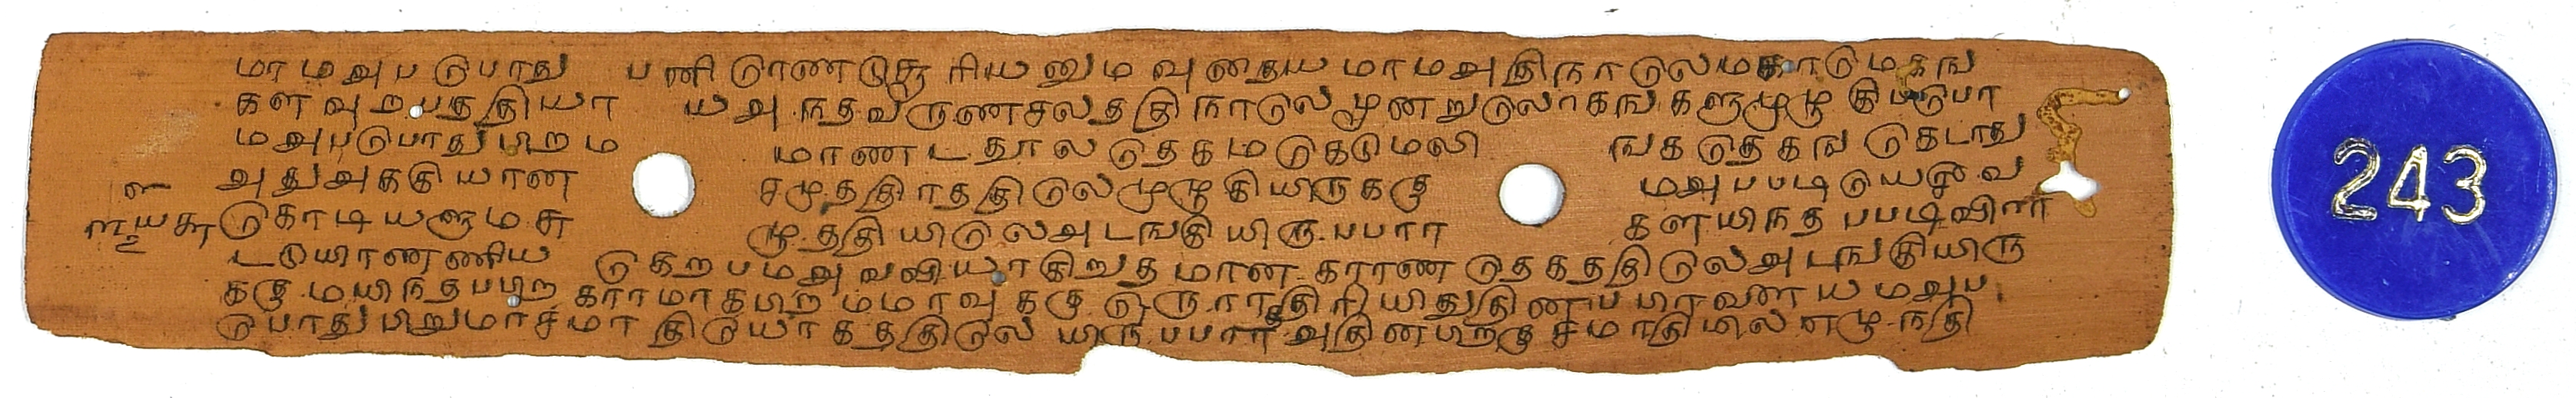 மாமஅபடுபாது பனிடுரணடுசூரியனும வுதையமாமஅதிநாடுலமகாடுமகங
களவுறபததியா யஅநதவருணசலததிநாடுலமூனறுடுலாகஙகளுமூழுகிபடுபா
மஅபடுபாதுபிறம மாணடதாலடுதகமடுகடுமலி ஙகடுதகஙடுகடாது
அதுஅககியான சமூததிரததிடுலமுழுகியிருககு மஅபபடிடுயழுவ
டுகாடியளுமசு மூததியிடுலஅடஙகியிருபபார களயிநதபபடிவிளா
டடுயிரணணிய டுகறபமஅவவியாகிறுதமானகாரணடுதகததிடுலஅடஙகியிரு
ககுமயிநதபபிறகாரமாகபிறமமாவுககுஒருராததிரியிதுதினபபிரவளையமஅப
டுபாதுபிறுமாசமாதிடுயாகததிடுலயிருபபாரஅதினபிறகுசமாதியிலஎழுநதி
243